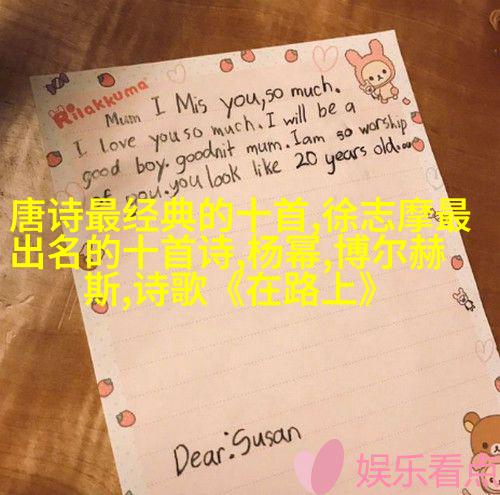 Rilakkuma
Mum I Mis you,so much.
I love you so much.I will be a
good boy.goodnit mum.Iam so worship
of you.you look like 20 years old.
唐诗最经典的十首,徐志摩最
出名的十首诗,杨幂,博尔赫
斯,诗歌《在路上》
Dear:Susan
娱乐看点